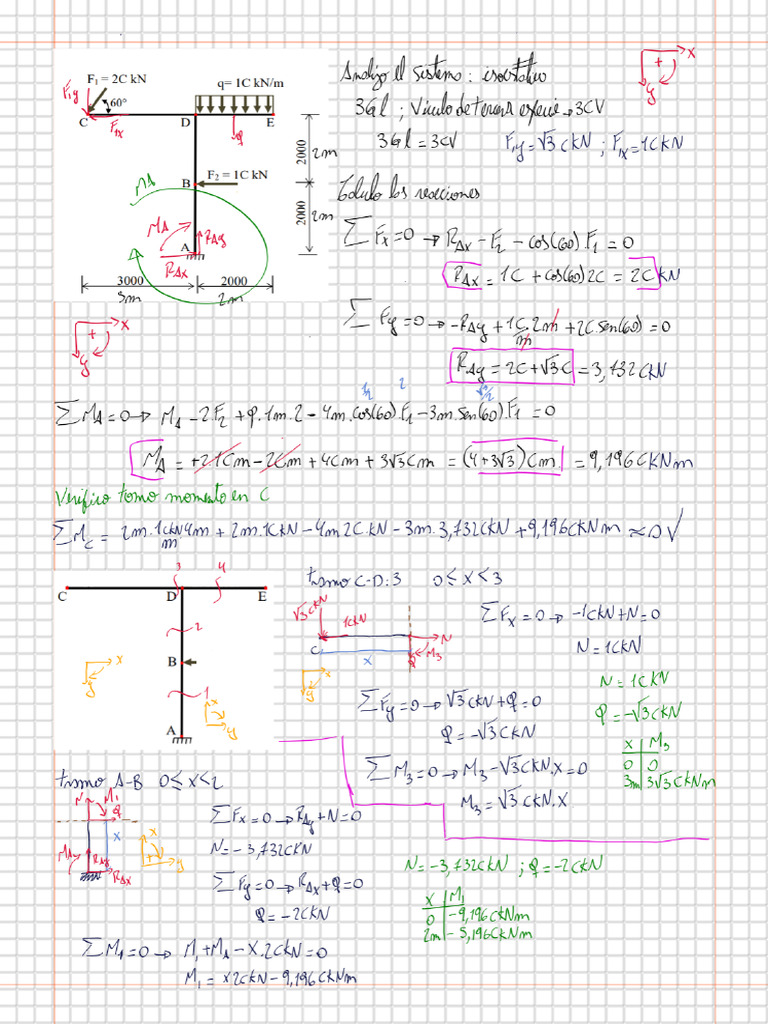 F₁ = 2C kN
q= 1C kN/m
F₁y
60°
C
F₁x
D
E
Q
2000
2m
B
F₂ = 1C kN
MA
2000
2m
MA
RAy
A
RAx
3000
2000
3m
2m
Analizo el sistema: isostático
x
+
y
3Gl ; Vínculo de tercera especie → 3CV
3Gl = 3CV
F₁y = √3 CkN ; F₁x = 1CkN
Cálculo las reacciones
∑Fx = 0 → RAx - F₂ - cos(60).F₁ = 0
RAx = 1C + cos(60) 2C = 2C kN
∑Fy = 0 → -RAy + 1C/m . 2m + 2C sen(60) = 0
RAy = 2C + √3C = 3,732CkN
x
+
y
1/2
2
√3/2
∑MA = 0 → MA - 2F₂ + Q.1m.2 - 4m.cos(60).F₁ - 3m.sen(60).F₁ = 0
MA = +2.1Cm - 2Cm + 4Cm + 3√3Cm = (4+3√3)Cm = 9,196CkNm
Verifico tomo momento en C
∑Mc = 2m.1CkN/m 4m + 2m.1CkN - 4m2C.kN - 3m.3,732CkN + 9,196CkNm ≈ 0 √
3
4
C
D
E
2
x
y
B
1
x
y
A
tramo C-D: 3 0 ≤ x < 3
√3CkN
1CkN
N
C
x
Q
M₃
x
y
∑Fx = 0 → -1CkN + N = 0
N = 1CkN
∑Fy = 0 → √3CkN + Q = 0
Q = -√3CkN
∑M₃ = 0 → M₃ - √3CkN.x = 0
M₃ = √3CkN.x
N = 1CkN
Q = -√3CkN
x M₃
0 0
3m 3√3CkNm
tramo A-B 0 ≤ x < 2
N
M₁
Q
x
MA
RAy
RAx
x
+
y
∑Fx = 0 → RAy + N = 0
N = -3,732CkN
∑Fy = 0 → RAx + Q = 0
Q = -2CkN
∑M₁ = 0 → M₁ + MA - x.2CkN = 0
M₁ = x2CkN - 9,196CkNm
N = -3,732CkN ; Q = -2CkN
x M₁
0 -9,196CkNm
2m -5,196CkNm